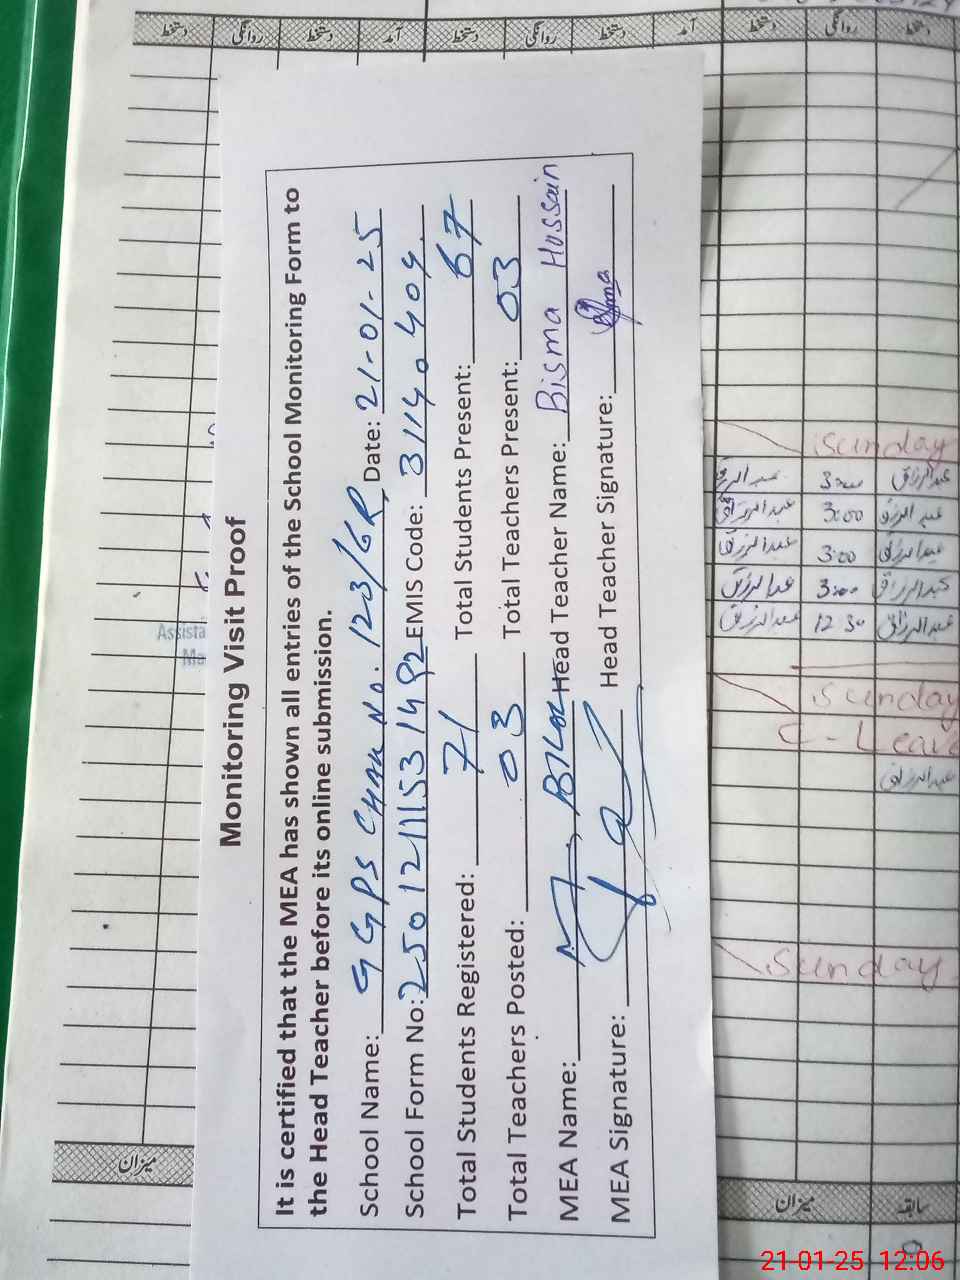 Monitoring Visit Proof
It is certified that the MEA has shown all entries of the School Monitoring Form to
the Head Teacher before its online submission.
School Name: GGPS CHAK No. 123/6R, Date: 21-01-25
School Form No: 25012111531492 EMIS Code: 31140409
Total Students Registered: 71 Total Students Present: 67
Total Teachers Posted: 03 Total Teachers Present: 03
MEA Name: M, BILAL Head Teacher Name: Bisma Hossain
MEA Signature: Head Teacher Signature:
دستخط روانگی دستخط آمد دستخط روانگی دستخط آمد دستخط روانگی دستخط
Sunday
عبدالرزاق 3:00 عبدالرزاق
عبدالرزاق 3:00 عبدالرزاق
عبدالرزاق 3:00 عبدالرزاق
عبدالرزاق 3:00 عبدالرزاق
عبدالرزاق 12 30 عبدالرزاق
Sunday
C-Leave
عبدالرزاق
Sunday
میزان
میزان
سابقہ
Assista
21-01-25 12:06